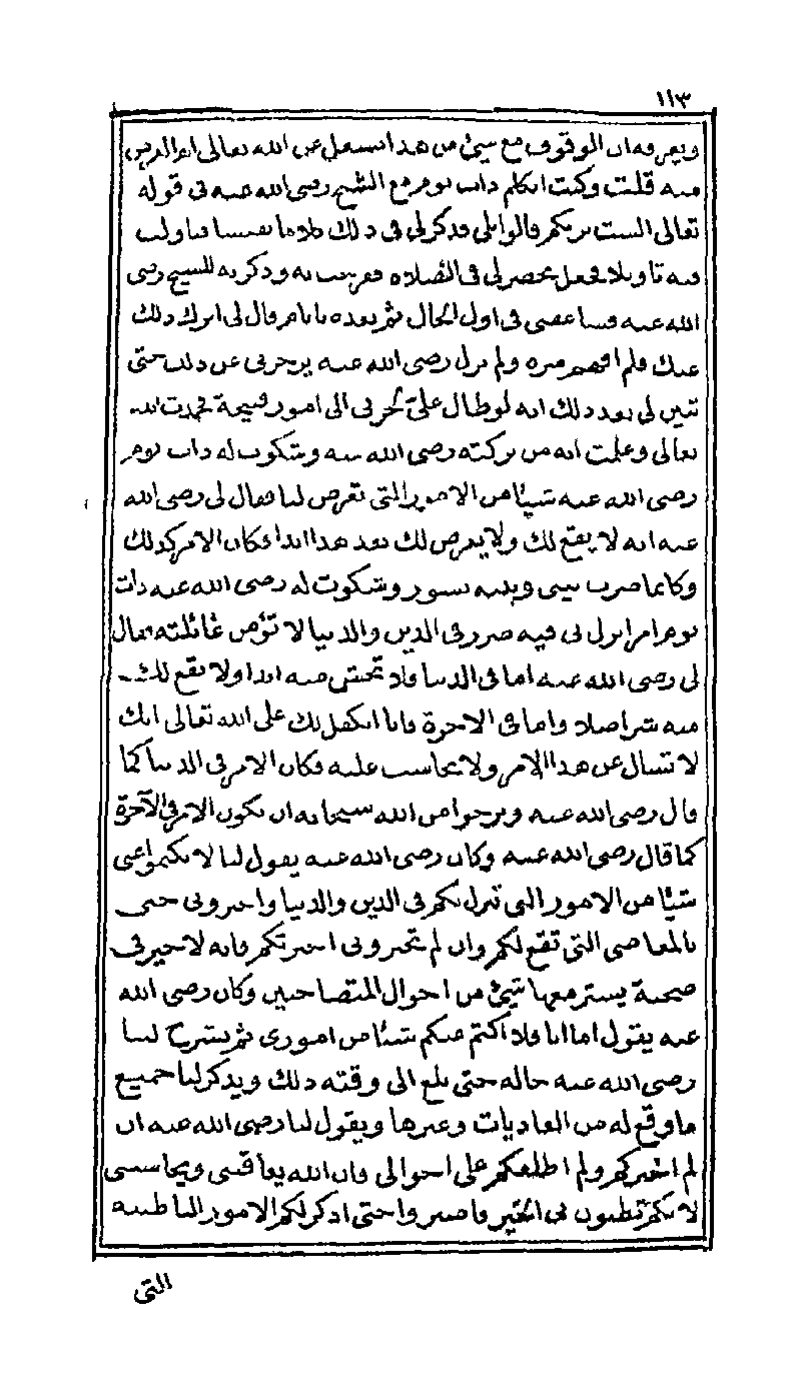 ١١٣
ويعرفه ان الوقوف مع شيء من هذا الشغل عن الله تعالى
منه قلت وكنت اتكلم ذات يوم مع الشيخ رضى الله عنه فى قوله
تعالى الست بربكم قالوا بلى فذكر لى فى ذلك كلاما نفيسا فتاولت
فيه تاويلا فجعل يحضر لى فى الصلاة ففرحت به وذكرته للشيخ رضى
الله عنه فساعفنى فى اول الحال ثم بعده بايام قال لى اترك ذلك
عنك فلم افهم سره ولم يزل رضى الله عنه يزجرنى عن ذلك حتى
تبين لى بعد ذلك انه لو طال علي لجرنى الى امور قبيحة فحمدت الله
تعالى وعلمت انه من بركته رضى الله عنه وشكوت له ذات يوم
رضى الله عنه شيئا من الامور التى تعرض لنا فقال لى رضى الله
عنه انه لا يقع لك ولا يعرض لك بعد هذا ابدا فكان الامر كذلك
وكانما ضرب بينى وبينه بسور وشكوت له رضى الله عنه ذات
يوم امرا نزل بى فيه ضرر فى الدين والدنيا لا تؤمن غائلته فقال
لى رضى الله عنه اما فى الدنيا فلا تخش منه ابدا ولا يقع لك
منه شر اصلا واما فى الاخرة فانا اتكفل لك على الله تعالى انك
لا تسال عن هذا الامر ولا تحاسب عليه فكان الامر فى الدنيا كما
قال رضى الله عنه ونرجوا من الله سبحانه ان يكون الامر فى الآخرة
كما قال رضى الله عنه وكان رضى الله عنه يقول لنا لا تكتموا عنى
شيئا من الامور التى تنزل بكم فى الدين والدنيا واخبرونى حتى
بالمعاصى التى تقع لكم وان لم تخبرونى اخبرتكم فانه لا خير فى
صحبة يستر معها شيئ من احوال المتصاحبين وكان رضى الله
عنه يقول اما انا فلا اكتم عنكم شيئا من امورى ثم يشرح لنا
رضى الله عنه حاله حتى بلغ الى وقته ذلك ويذكر لنا جميع
ما وقع له من العاديات وغيرها ويقول لنا رضى الله عنه ان
لم اخبركم ولم اطلعكم على احوالى فان الله يعاقبنى ويحاسبنى
لانكم تظنون بى الخير فاصبروا حتى اذكر لكم الامور الباطنيه
التى